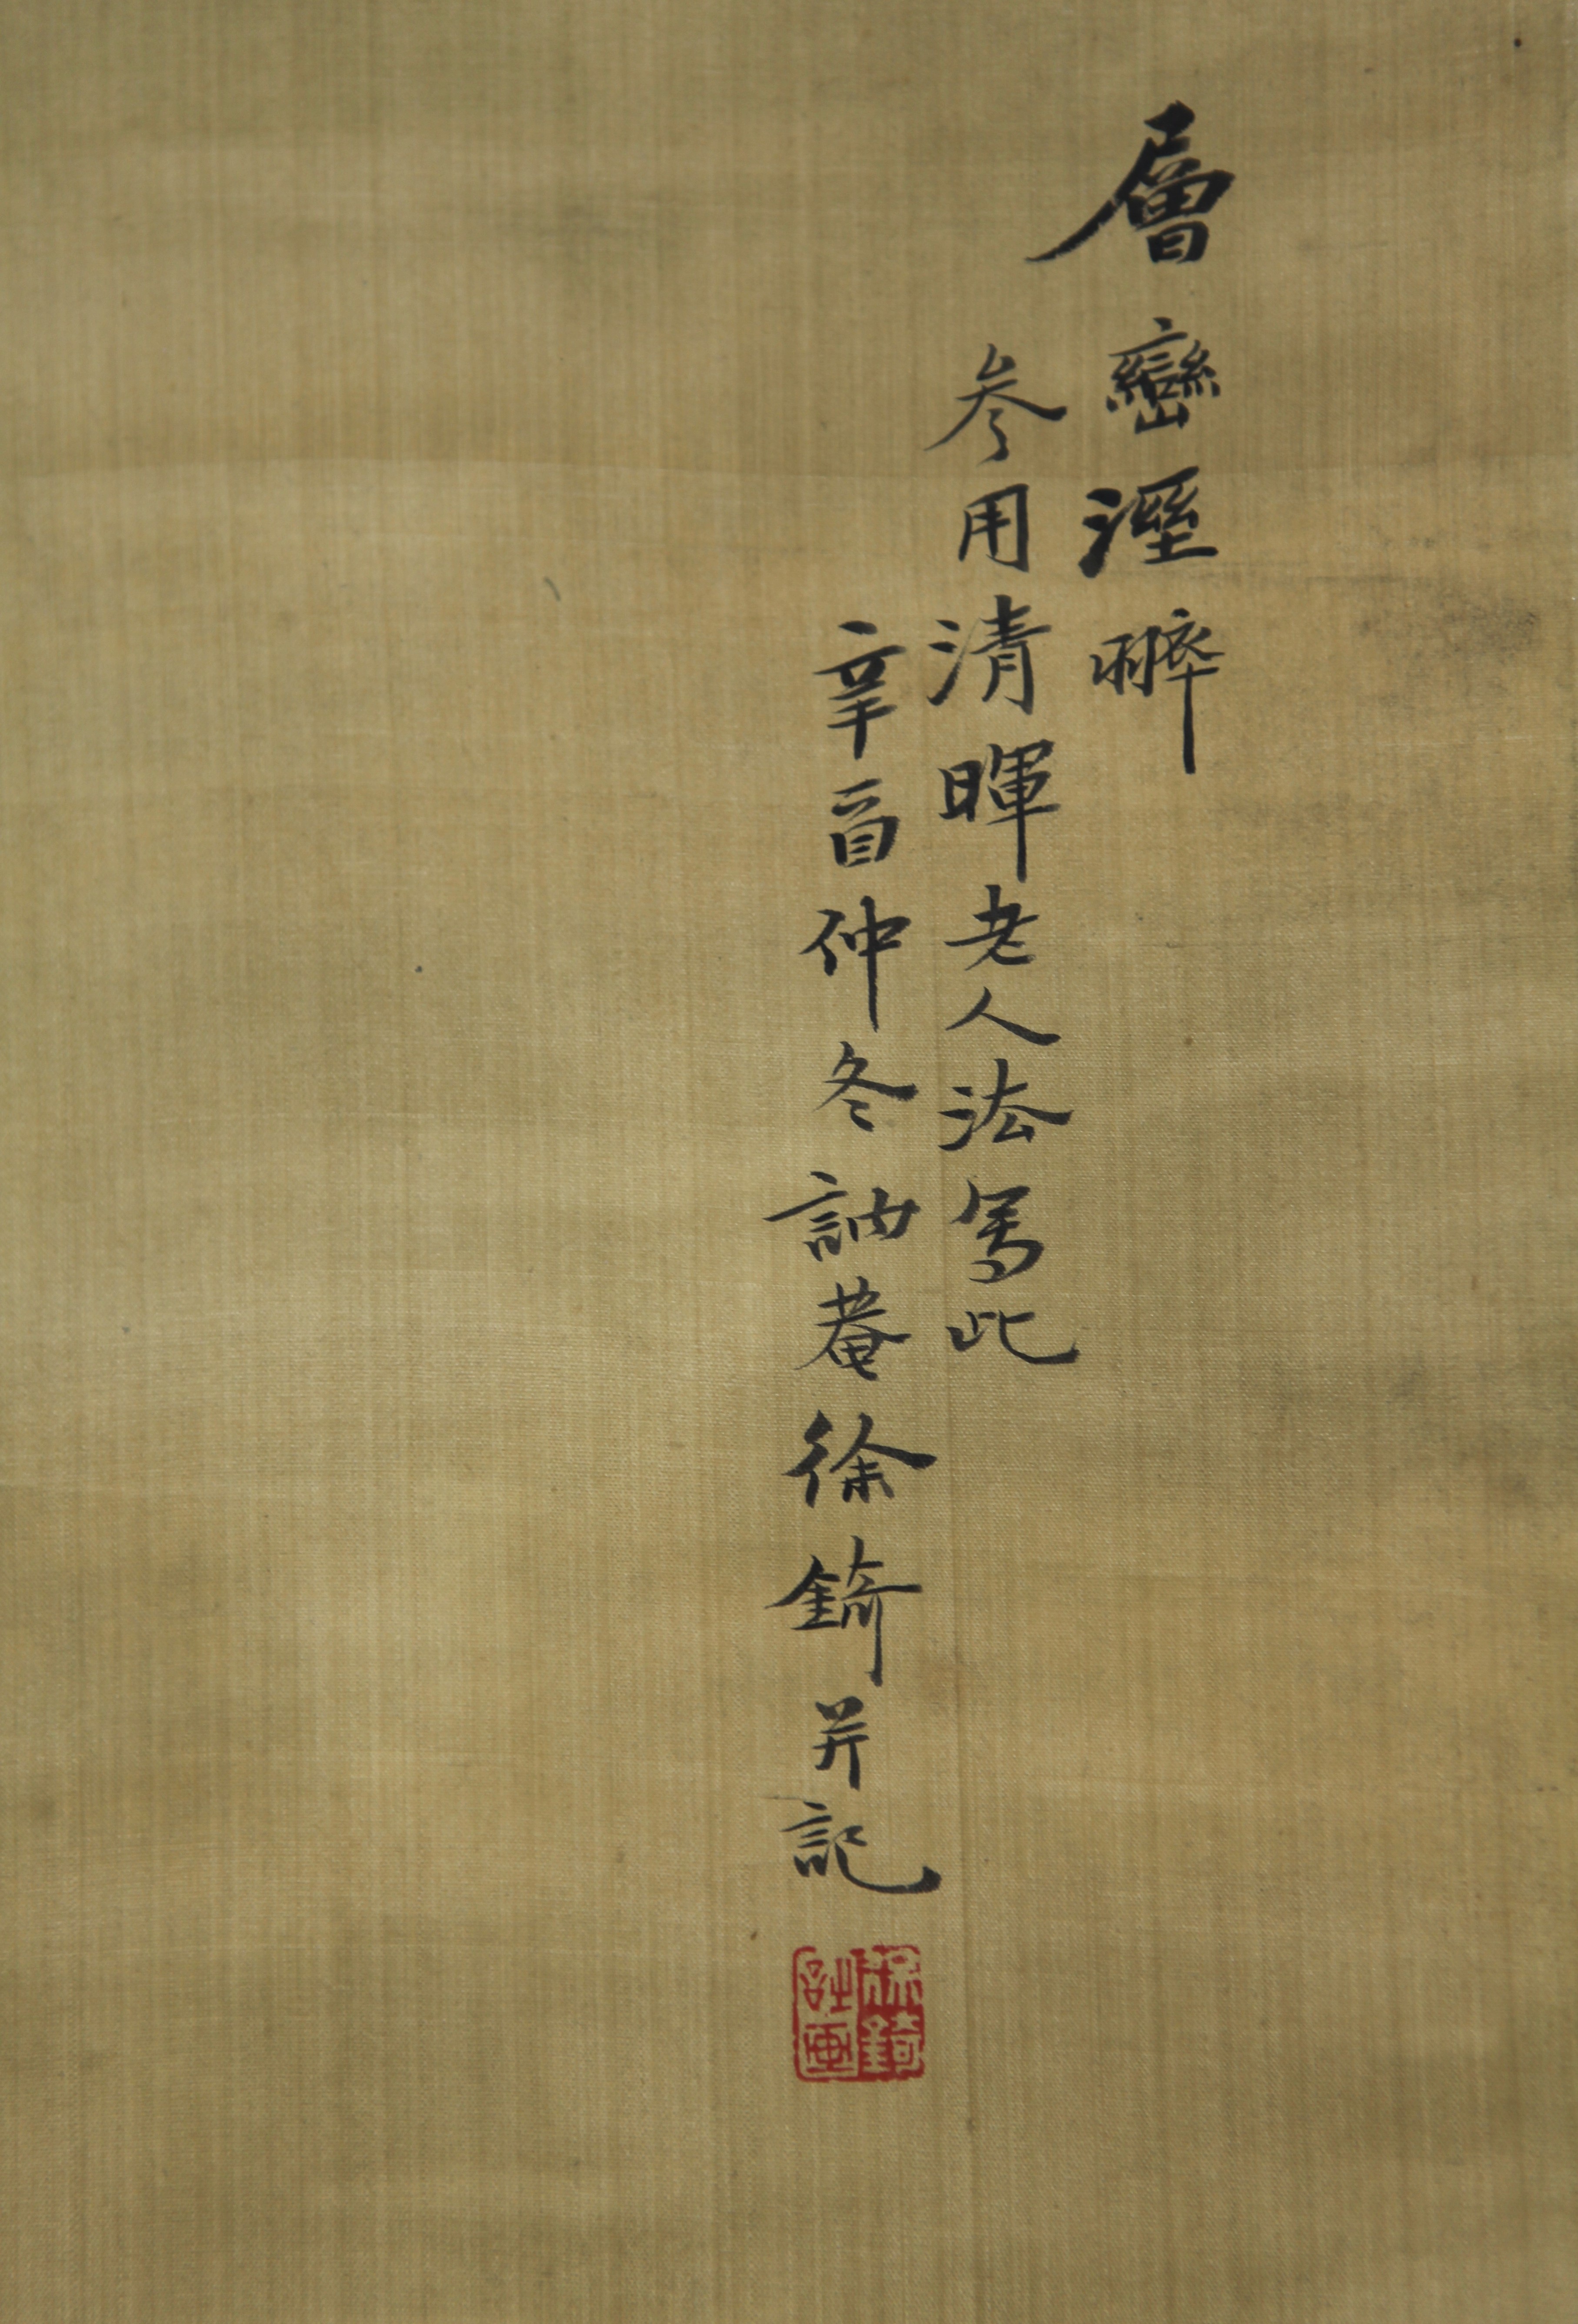 層巒溼翠
参用清暉老人法寫此
辛酉仲冬訥菴徐錡并記
徐錡